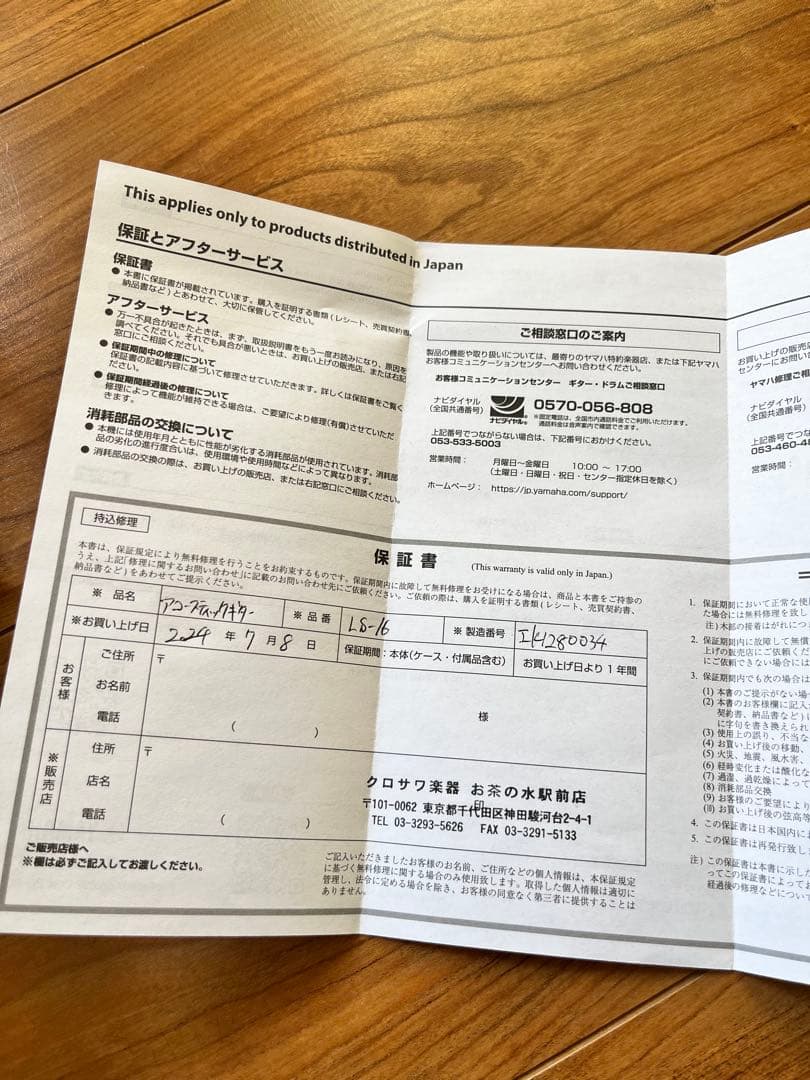 This applies only to products distributed in Japan
保証とアフターサービス
保証書
● 本書に保証書が掲載されています。購入を証明する書類(レシート、売買契約書、
納品書など)とあわせて、大切に保管してください。
アフターサービス
● 万一不具合が起きたときは、まず、取扱説明書をもう一度お読みになり、原因を
調べてください。それでも具合が悪いときは、お買い上げの販売店、または右記
窓口にご相談ください。
● 保証期間中の修理について
保証書の記載内容に基づいて修理させていただきます。詳しくは保証書をご覧く
ださい。
● 保証期間経過後の修理について
修理によって機能が維持できる場合は、ご要望により修理(有償)させていただ
きます。
消耗部品の交換について
● 本機には使用年月とともに性能が劣化する消耗部品が使用されています。消耗部
品の劣化の進行度合いは、使用環境や使用時間などによって異なります。
● 消耗部品の交換の際は、お買い上げの販売店、または右記窓口にご相談ください。
ご相談窓口のご案内
製品の機能や取り扱いについては、最寄りのヤマハ特約楽器店、または下記ヤマハ
お客様コミュニケーションセンターへお問い合わせください。
お客様コミュニケーションセンター ギター・ドラムご相談窓口
ナビダイヤル
(全国共通番号)
ナビダイヤル®
0570-056-808
※固定電話は、全国市内通話料金でご利用いただけます。
通話料金は音声案内で確認できます。
上記番号でつながらない場合は、下記番号におかけください。
053-533-5003
営業時間: 月曜日～金曜日 10:00 ～ 17:00
(土曜日・日曜日・祝日・センター指定休日を除く)
ホームページ: https://jp.yamaha.com/support/
お買い上げの販売店
センターにお問い
ヤマハ修理ご相
ナビダイヤル
(全国共通番号)
上記番号でつ
053-460-48
営業時間:
持込修理
保証書
(This warranty is valid only in Japan.)
本書は、保証規定により無料修理を行うことをお約束するものです。保証期間内に故障して無料修理をお受けになる場合は、商品と本書をご持参の
うえ、上記「修理に関するお問い合わせ」に記載のお問い合わせ先にご依頼ください。ご依頼の際は、購入を証明する書類(レシート、売買契約書、
納品書など)をあわせてご提示ください。
※ 品名 アコースティックギター ※ 品番 LS-16 ※ 製造番号 IKH280034
※お買い上げ日 2024 年 7 月 8 日 保証期間:本体(ケース・付属品含む) お買い上げ日より 1 年間
お客様
ご住所 〒
お名前 様
電話 ( )
※販売店
住所 〒
店名 印
電話 ( )
クロサワ楽器 お茶の水駅前店
〒101-0062 東京都千代田区神田駿河台2-4-1
TEL 03-3293-5626 FAX 03-3291-5133
ご販売店様へ
※欄は必ずご記入してお渡しください。
ご記入いただきましたお客様のお名前、ご住所などの個人情報は、本保証規定
に基づく無料修理に関する場合のみ使用致します。取得した個人情報は適切に
管理し、法令に定める場合を除き、お客様の同意なく第三者に提供することは
ありません。
1. 保証期間において正常な使
た場合には無料修理を致し
注)木部の接着はがれにつ
2. 保証期間内に故障して無償
上げの販売店にご依頼くだ
にご依頼できない場合には
3. 保証期間内でも次の場合は
(1) 本書のご提示がない場合
(2) 本書のお客様欄に記入が
契約書、納品書など)が
に字句を書き換えられ
(3) 使用上の誤り、不当な
(4) お買い上げ後の移動、
(5) 火災、地震、風水害、
(6) 経時変化または酸化な
(7) 過湿、過乾燥によって
(8) 消耗部品交換
(9) お客様のご要望により
(10) お買い上げ後の弦高等
4. この保証書は日本国内にお
5. この保証書は再発行致しま
注) この保証書は本書に示した
ってこの保証書によってお
経過後の修理などについて